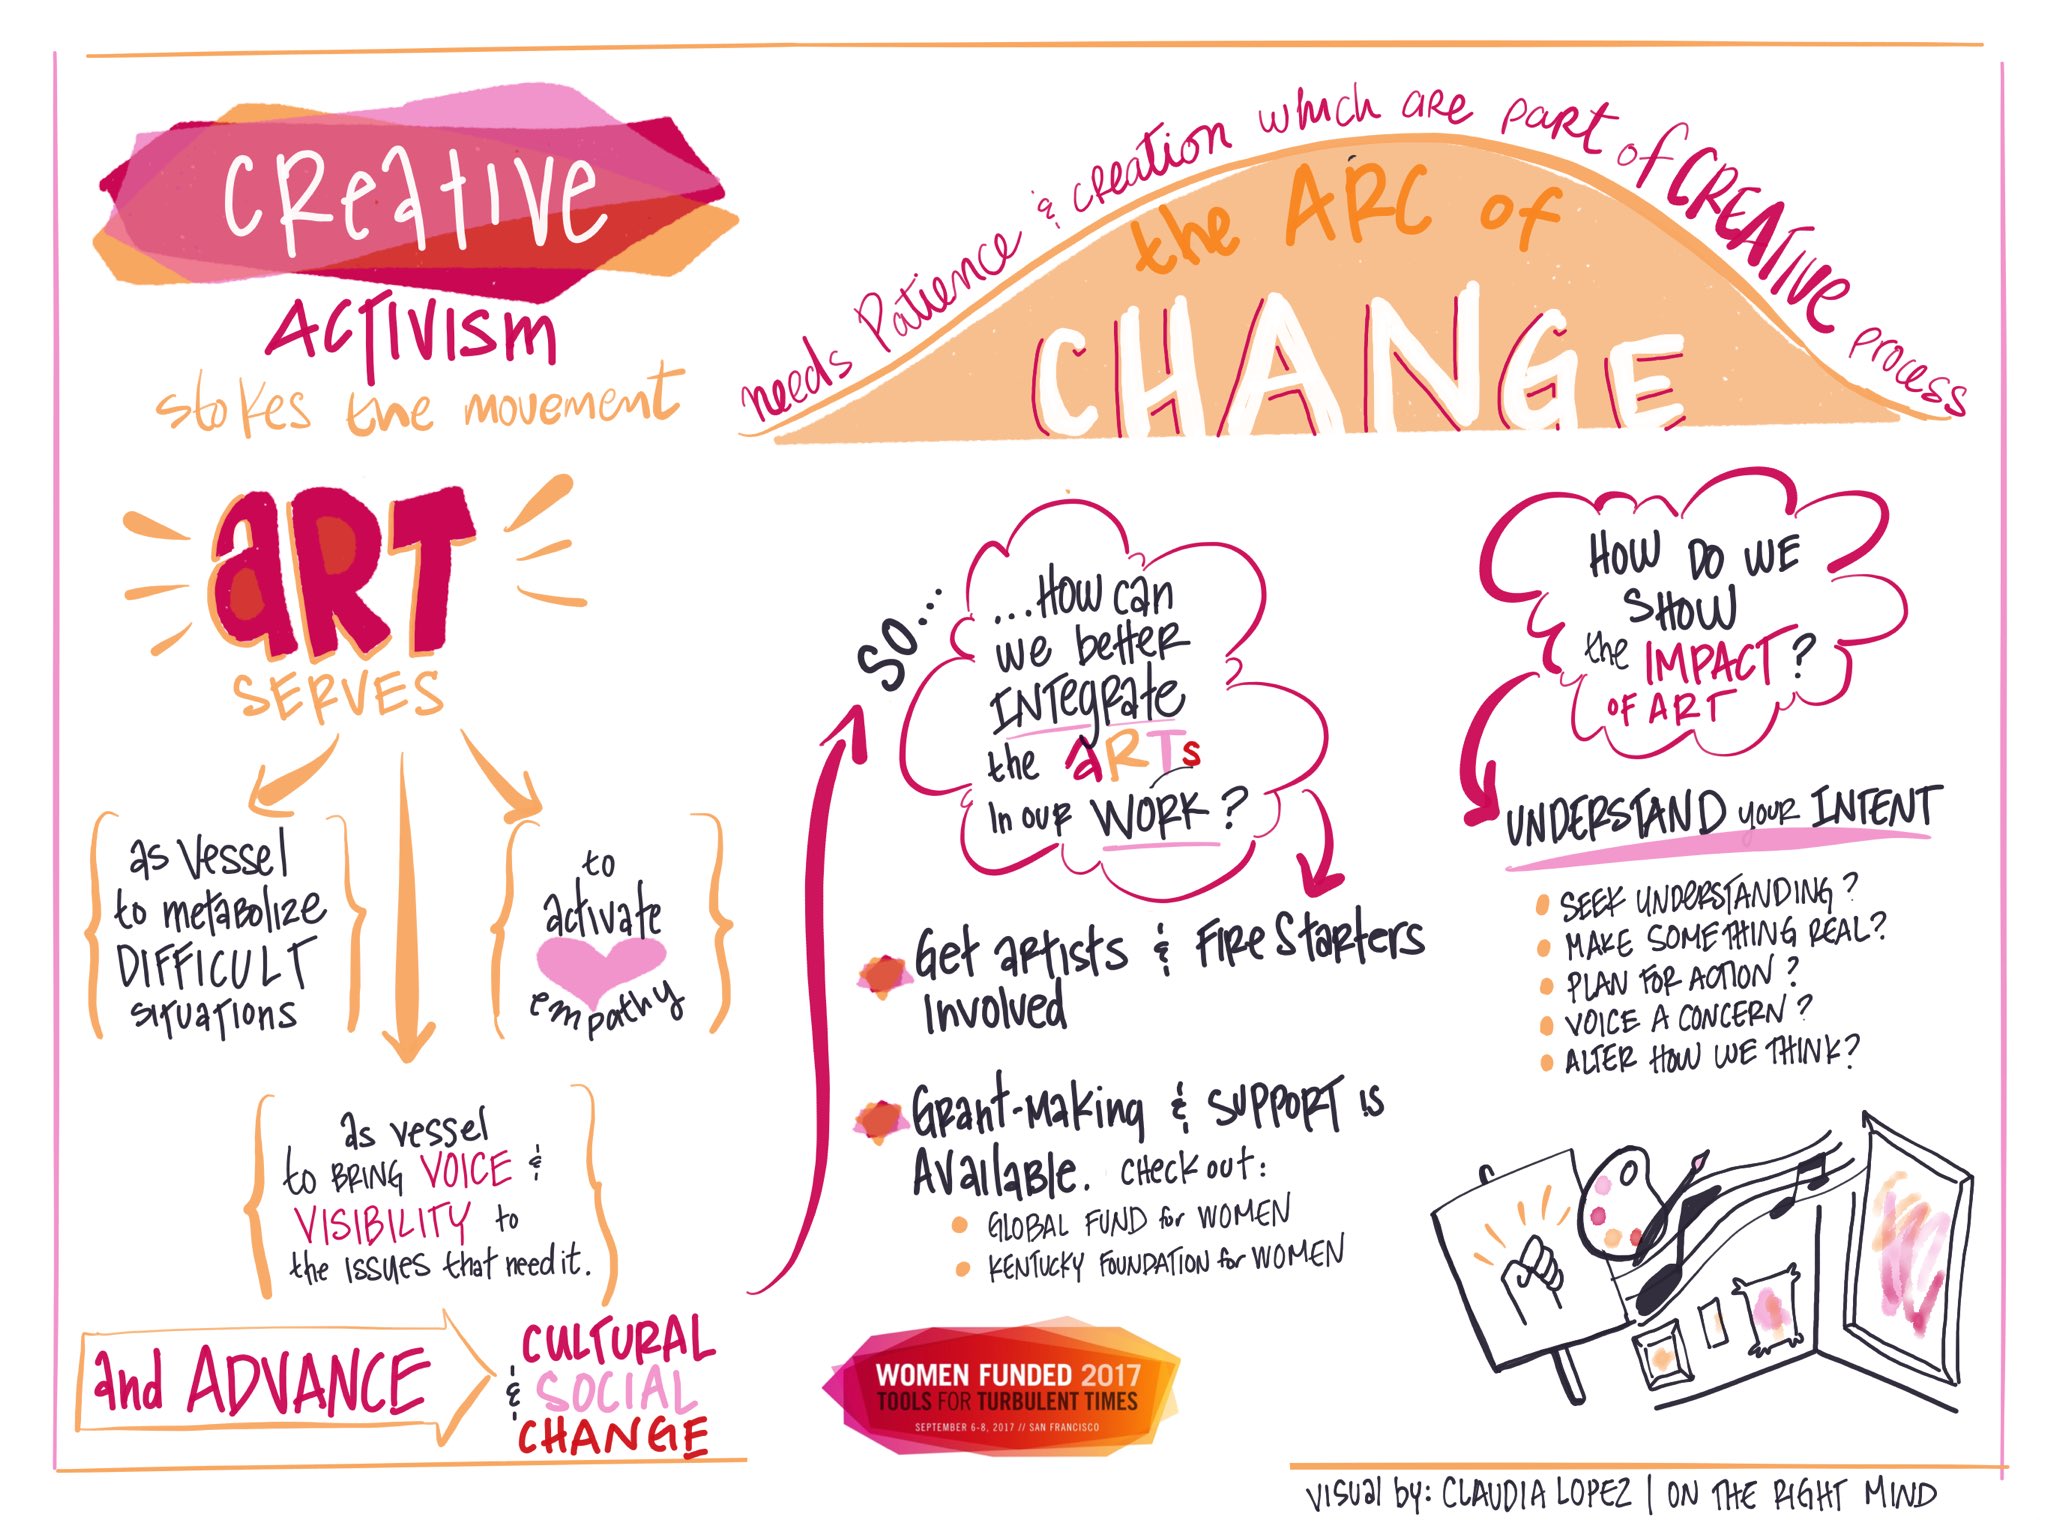 creative
ACTIVISM
stokes the movement
needs Patience & creation which are part of CREATIVE process
the ARC of
CHANGE
ART
SERVES
as vessel
to metabolize
DIFFICULT
situations
to
activate
empathy
as vessel
to BRING VOICE &
VISIBILITY to
the issues that need it.
and ADVANCE
CULTURAL
& SOCIAL
CHANGE
SO...
...How can
we better
INTEGRATE
the ARTs
in our WORK?
Get artists & Fire Starters
Involved
Grant-Making & SUPPORT is
Available. CHECK OUT:
GLOBAL FUND for WOMEN
KENTUCKY FOUNDATION for WOMEN
HOW DO WE
SHOW
the IMPACT?
OF ART
UNDERSTAND your INTENT
SEEK UNDERSTANDING?
MAKE SOMETHING REAL?
PLAN FOR ACTION?
VOICE A CONCERN?
ALTER HOW WE THINK?
WOMEN FUNDED 2017
TOOLS FOR TURBULENT TIMES
SEPTEMBER 6-8, 2017 // SAN FRANCISCO
visual by: CLAUDIA LOPEZ | ON THE RIGHT MIND